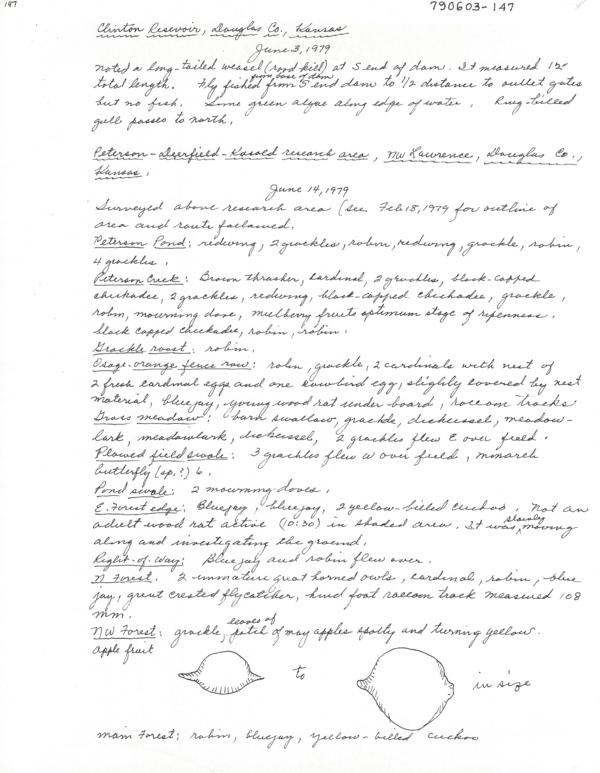 147
790603-147
Clinton Resevoir, Douglas Co., Kansas
June 3, 1979
Noted a long-tailed weasel (road kill) at S end of dam. It measured 12"
total length. Fly fished from base of dam from S end dam to 1/2 distance to outlet gates
but no fish. Some green algae along edge of water. Ring-billed
gull passes to north.
Peterson-Deerfield-Kasold research area, NW Lawrence, Douglas Co.,
Kansas.
June 14, 1979
Surveyed above research area (see Feb 18, 1979 for outline of
area and route followed.
Peterson Pond: redwing, 2 grackles, robin, redwing, grackle, robin,
4 grackles.
Peterson Creek: Brown thrasher, cardinal, 2 grackles, black-capped
chickadee, 2 grackles, redwing, black-capped chickadee, grackle,
robin, mourning dove, mulberry fruits optimum stage of ripenness.
black capped chickadee, robin, robin.
Grackle roost: robin.
Osage-orange fence row: robin, grackle, 2 cardinals with nest of
2 fresh cardinal eggs and one cowbird egg, slightly covered by nest
material, bluejay, young wood rat under board, raccoon tracks
Grass meadow: barn swallow, grackle, dickcissel, meadow-
lark, meadowlark, dickcissel, 2 grackles flew E over field.
Plowed field swale: 3 grackles flew W over field, monarch
butterfly (sp.?) 6.
Pond swale: 2 mourning doves.
E. Forest edge: Bluejay, bluejay, 2 yellow-billed cuckoo. Not an
adult wood rat active (10:30) in shaded area. It was slowly moving
along and investigating the ground.
Right-of-way: Bluejay and robin flew over.
N Forest. 2 immature great horned owls, cardinal, robin, blue
jay, great crested flycatcher, hind foot raccoon track measured 108
mm.
NW Forest: grackle, leaves of patch of may apples spotty and turning yellow.
apple fruit
to
in size
Main Forest: robin, bluejay, yellow-billed cuckoo